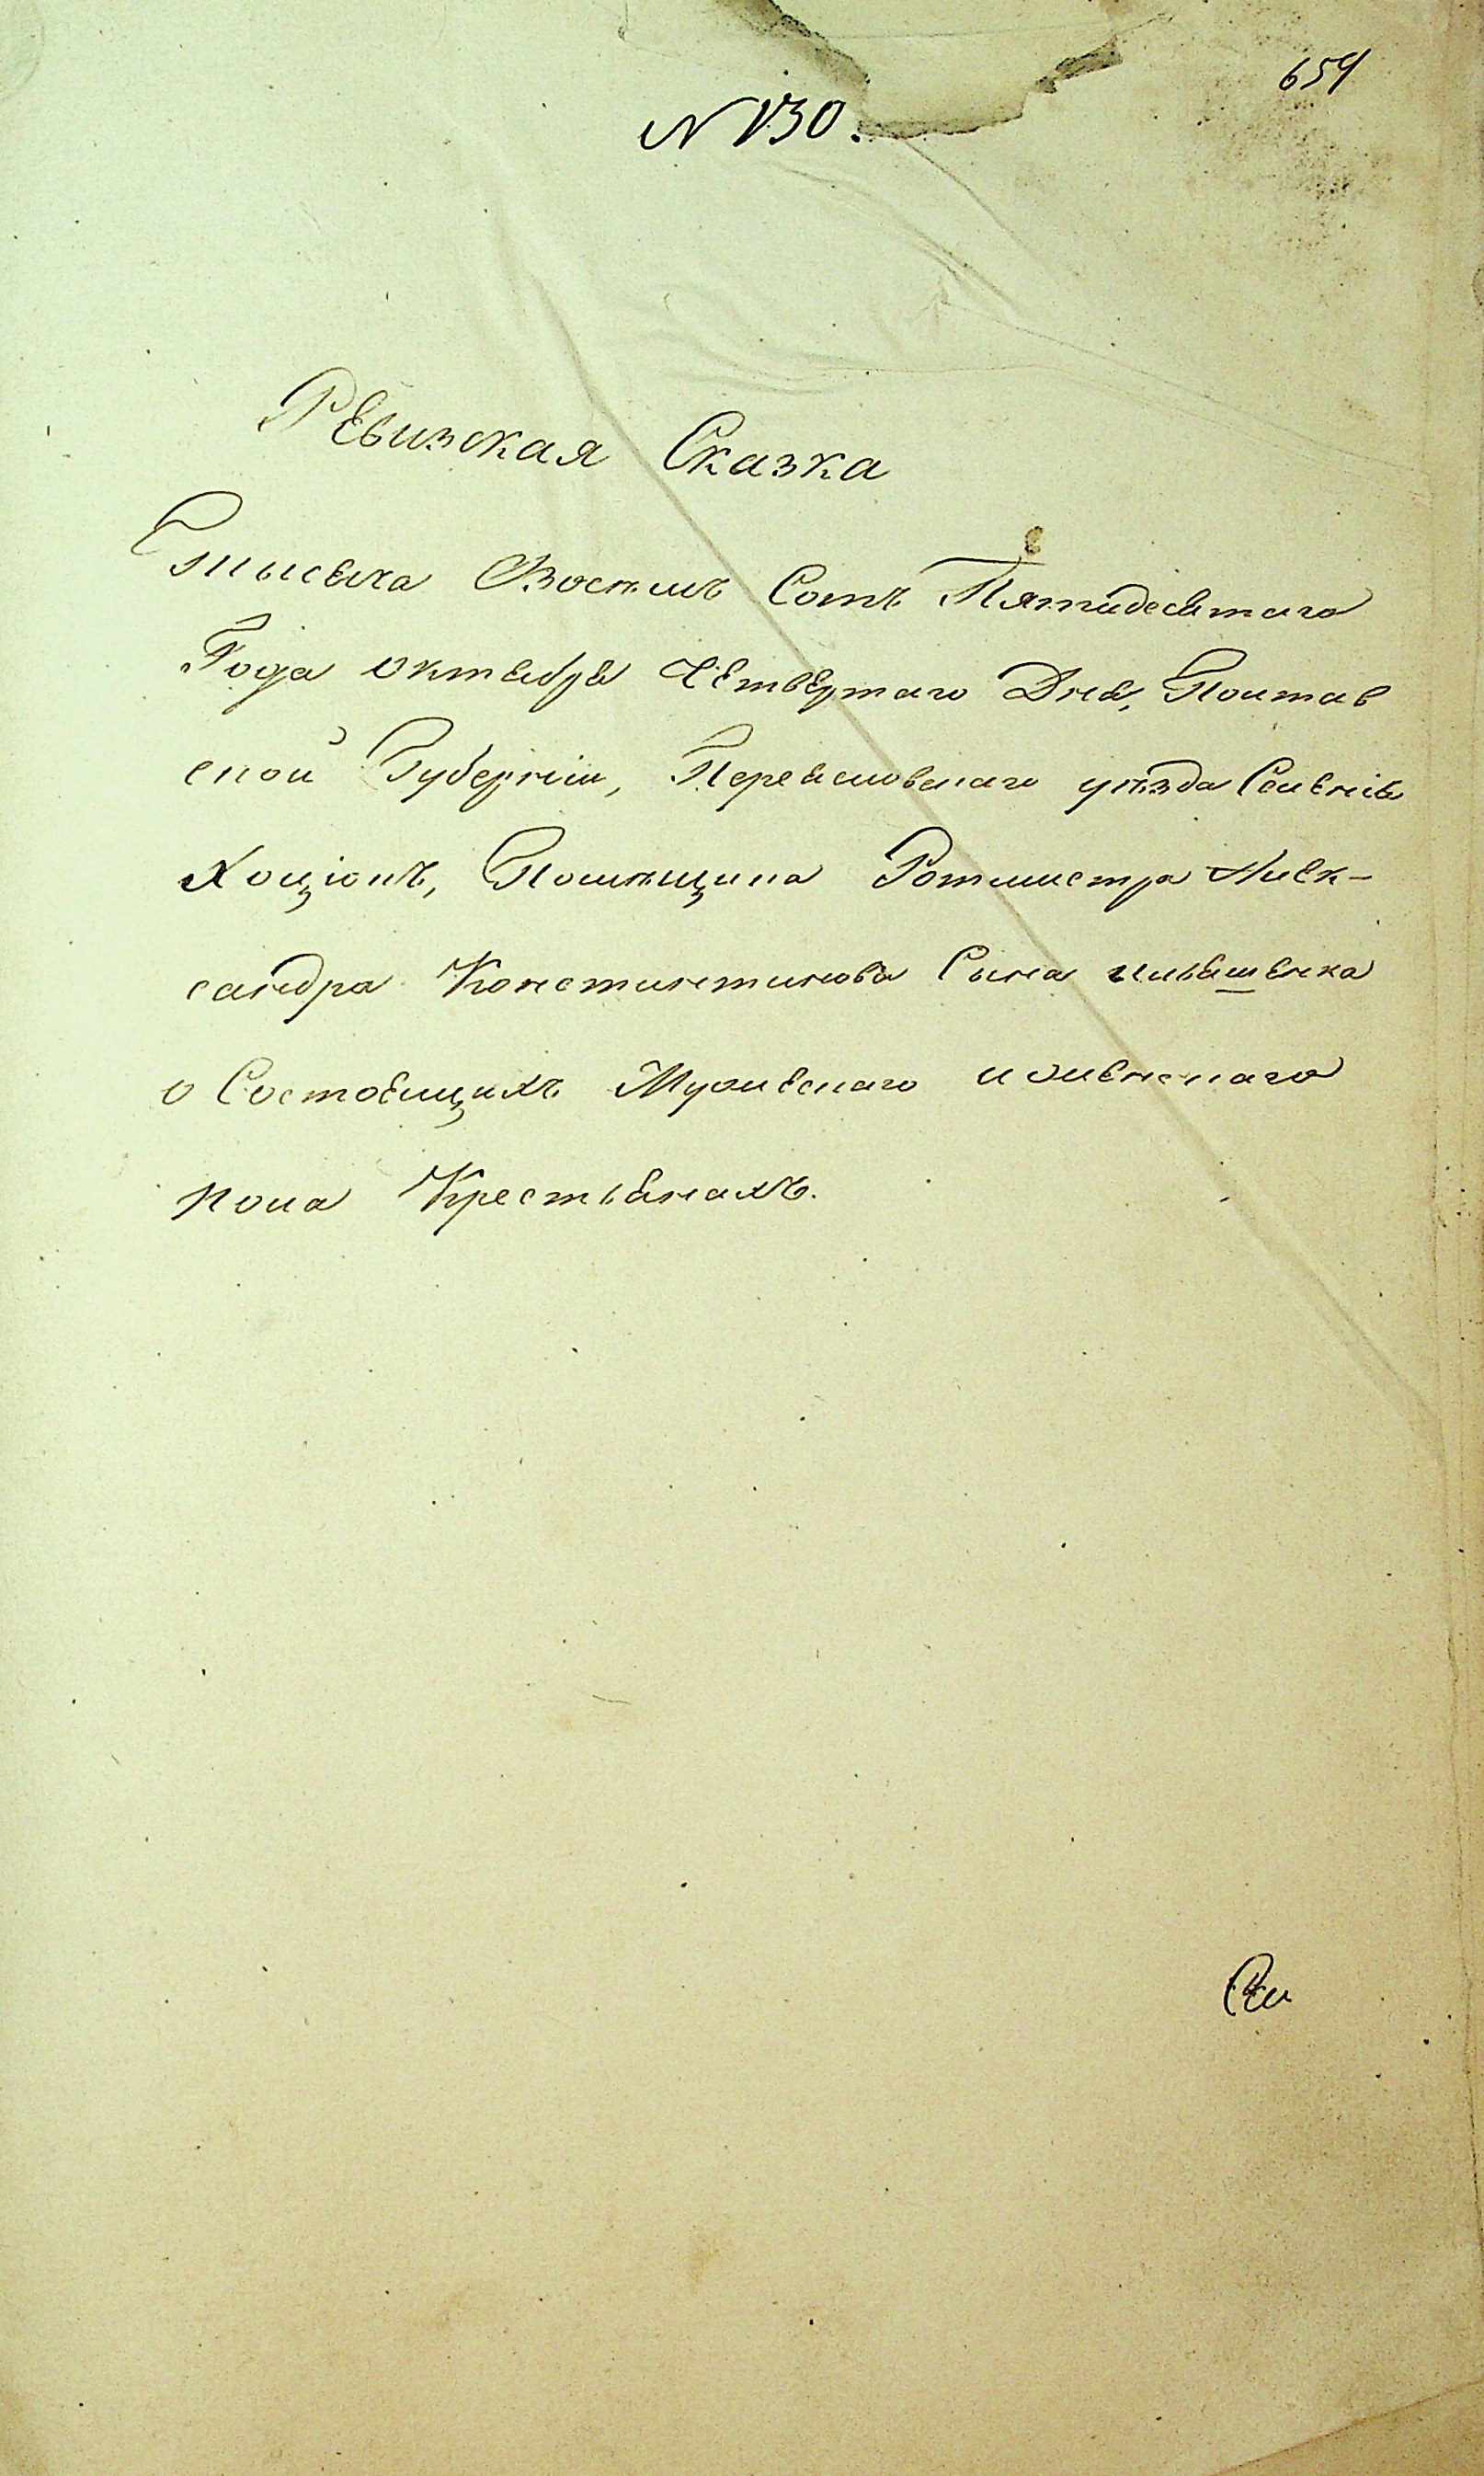 659
N 130.
Ревизская Сказка
Тысяча Восемь Сотъ Пятидесятаго
Года октября Четвертаго Дня, Полтав
ской Губерніи, Переясловскаго уѣзда Селенія
Хоцюкъ, Помѣщика Ротмистра Алек-
сандра Константинова Сына Ильяшенка
о Состоящихъ Мужескаго и женскаго
пола Крестьянахъ.